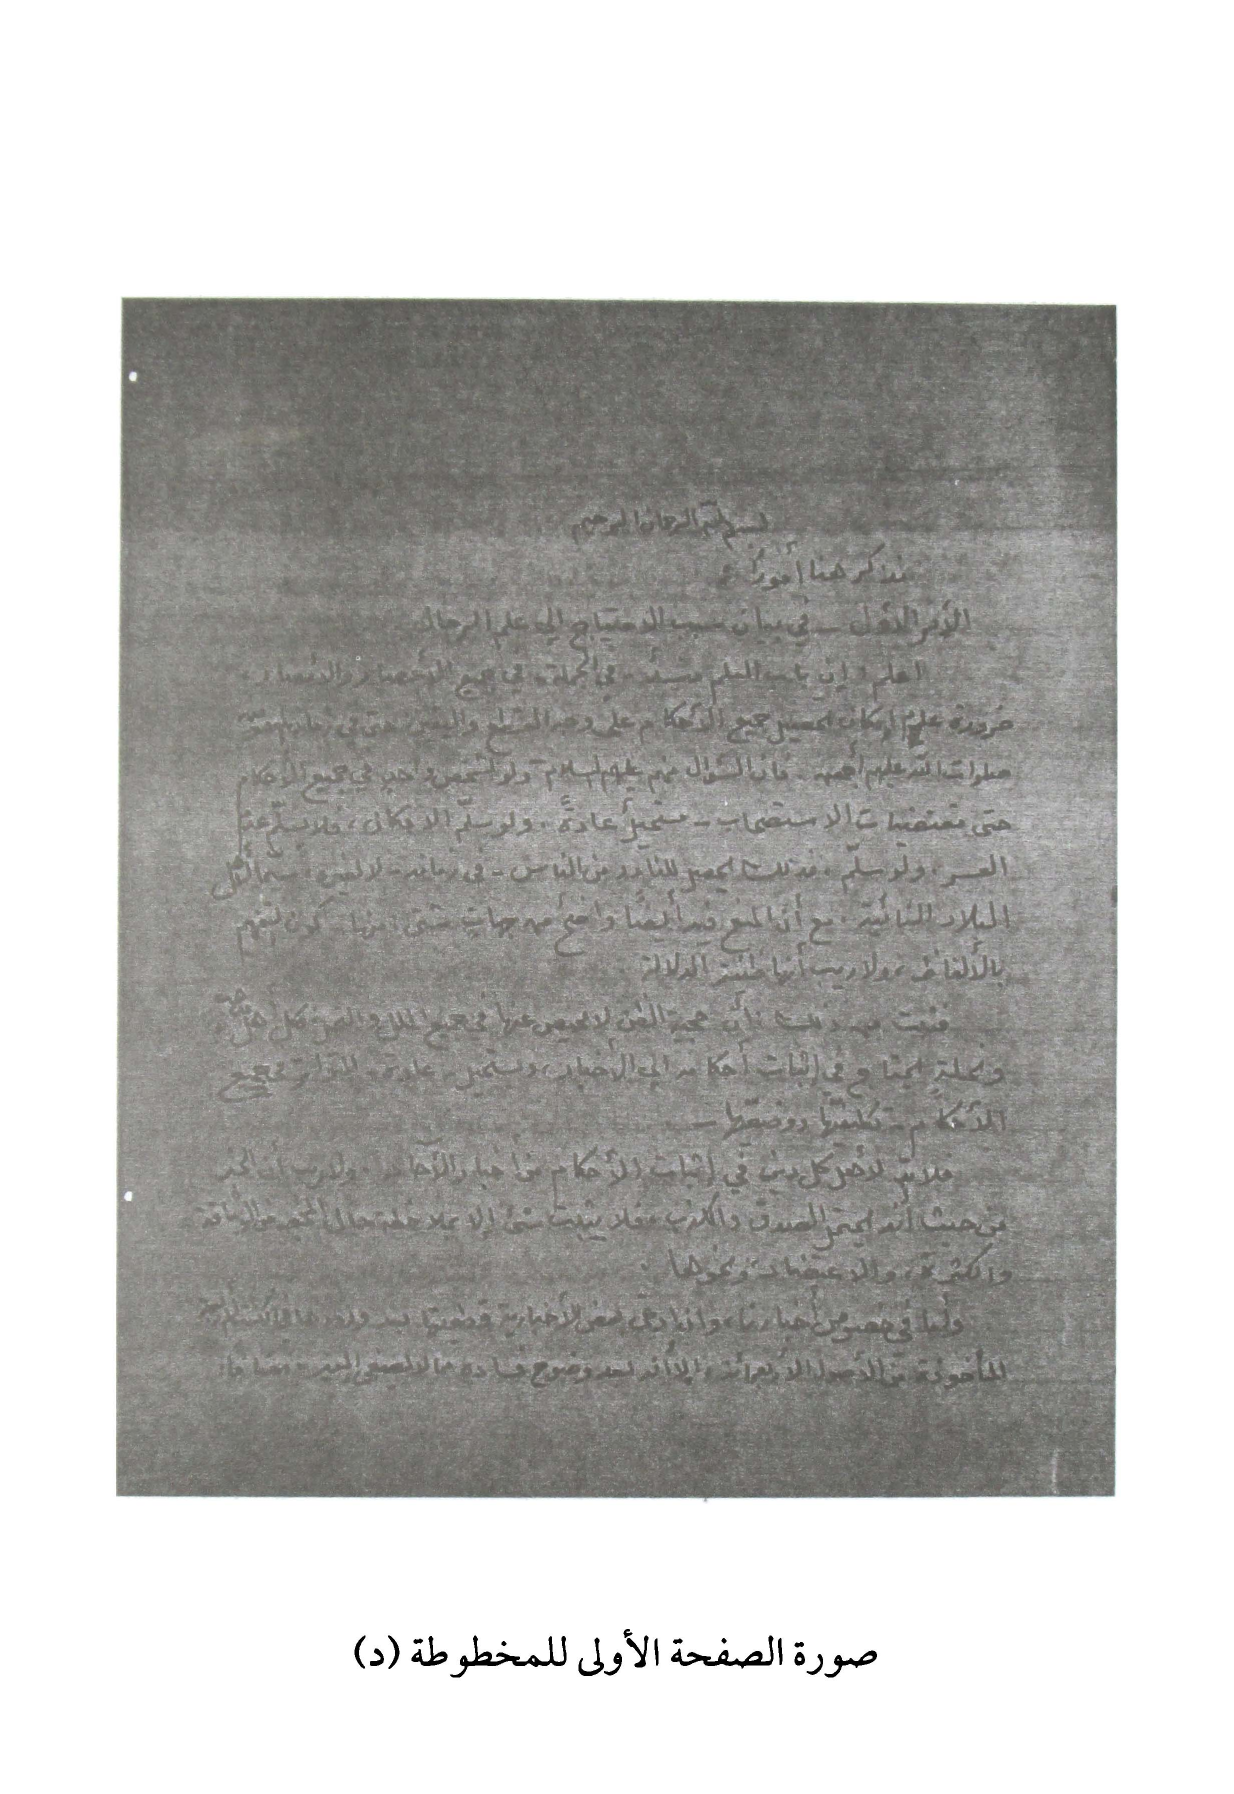 بسم الله الرحمان الرحيم
نذكر هنا أمورا :
الأمر الأول ـ في بيان سبب الاحتياج إلى علم الرجال
اعلم ، إن باب العلم منسد ـ في الجملة ـ في جميع الأعصار والأمصار ،
ضرورة عدم إمكان تحصيل جميع الأحكام على وجه القطع واليقين حتى في زمان
صلوات الله عليهم أجمعين . فإن السؤال منهم عليهم السلام ـ ولو لشخص واحد في جميع الأحكام
حتى مقتضيات الاستصحاب ـ مستحيل عادة . ولو سلم الإمكان ، فلا يسلم عدم
العسر ، ولو سلم ، فذلك يحصل للنادر من الناس ـ في زمانه ـ لا لغيره ، سيما
البلاد النائية . مع أن المنع فيه أيضا واضح من جهات شتى ، منها : كون التفهم
بالألفاظ ، ولا ريب أنها ظنية الدلالة .
فثبت من ذلك : أن حجية الظن لا محيص عنها في جميع الملل والنحل ، فكل أهل
ونحلة يحتاج في إثبات أحكامه إلى الأخبار ، ويستحيل ـ عادة ـ التواتر في جميع
الأحكام ـ تكليفيها ووضعيها ـ
فلا بد لأهل كل دين في إثبات الأحكام من أخبار الآحاد . ولا ريب أن الخبر
من حيث أنه يحتمل الصدق والكذب ، فلا يثبت شيئ إلا بملاحظة حال المخبر من الوثاقة
والكثرة ، والاعتضاد ونحوها .
وأما في خصوص أخبارنا ، وإن ادعى بعض الأخبارية قطعيتها بعد ورودها في الكتب
المأخوذة من الأصول الأربعمائة ، إلا أنه بعد وضوح فساده مما لا يصغى إليه ،
صورة الصفحة الأولى للمخطوطة (د)